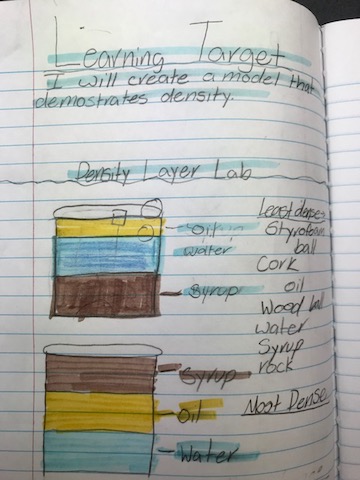 Learning Target
I will create a model that
demostrates density.
Density Layer Lab
Oil
water
Syrup
Least denses
Styrofoam
ball
Cork
oil
Wood ball
water
Syrup
rock
Most Dense
Syrup
Oil
Water